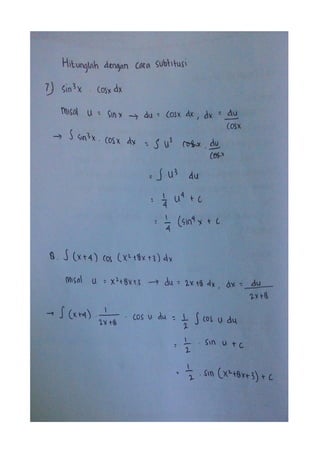 Hitunglah dengan cara subtitusi
7) sin³x . cosx dx
misal u = sin x → du = cosx dx, dx = du/cosx
→ ∫ sin³x . cosx dx = ∫ u³ cosx . du/cosx
= ∫ u³ du
= 1/4 u⁴ + c
= 1/4 (sin⁴ x + c.
8. ∫ (x+4) cos (x²+8x+3) dx
misal u = x²+8x+3 → du = 2x+8 dx, dx = du/2x+8
→ ∫ (x+4) . 1/2x+8 . cos u du = 1/2 ∫ cos u du
= 1/2 . sin u + c
= 1/2 . sin (x²+8x+3) + c